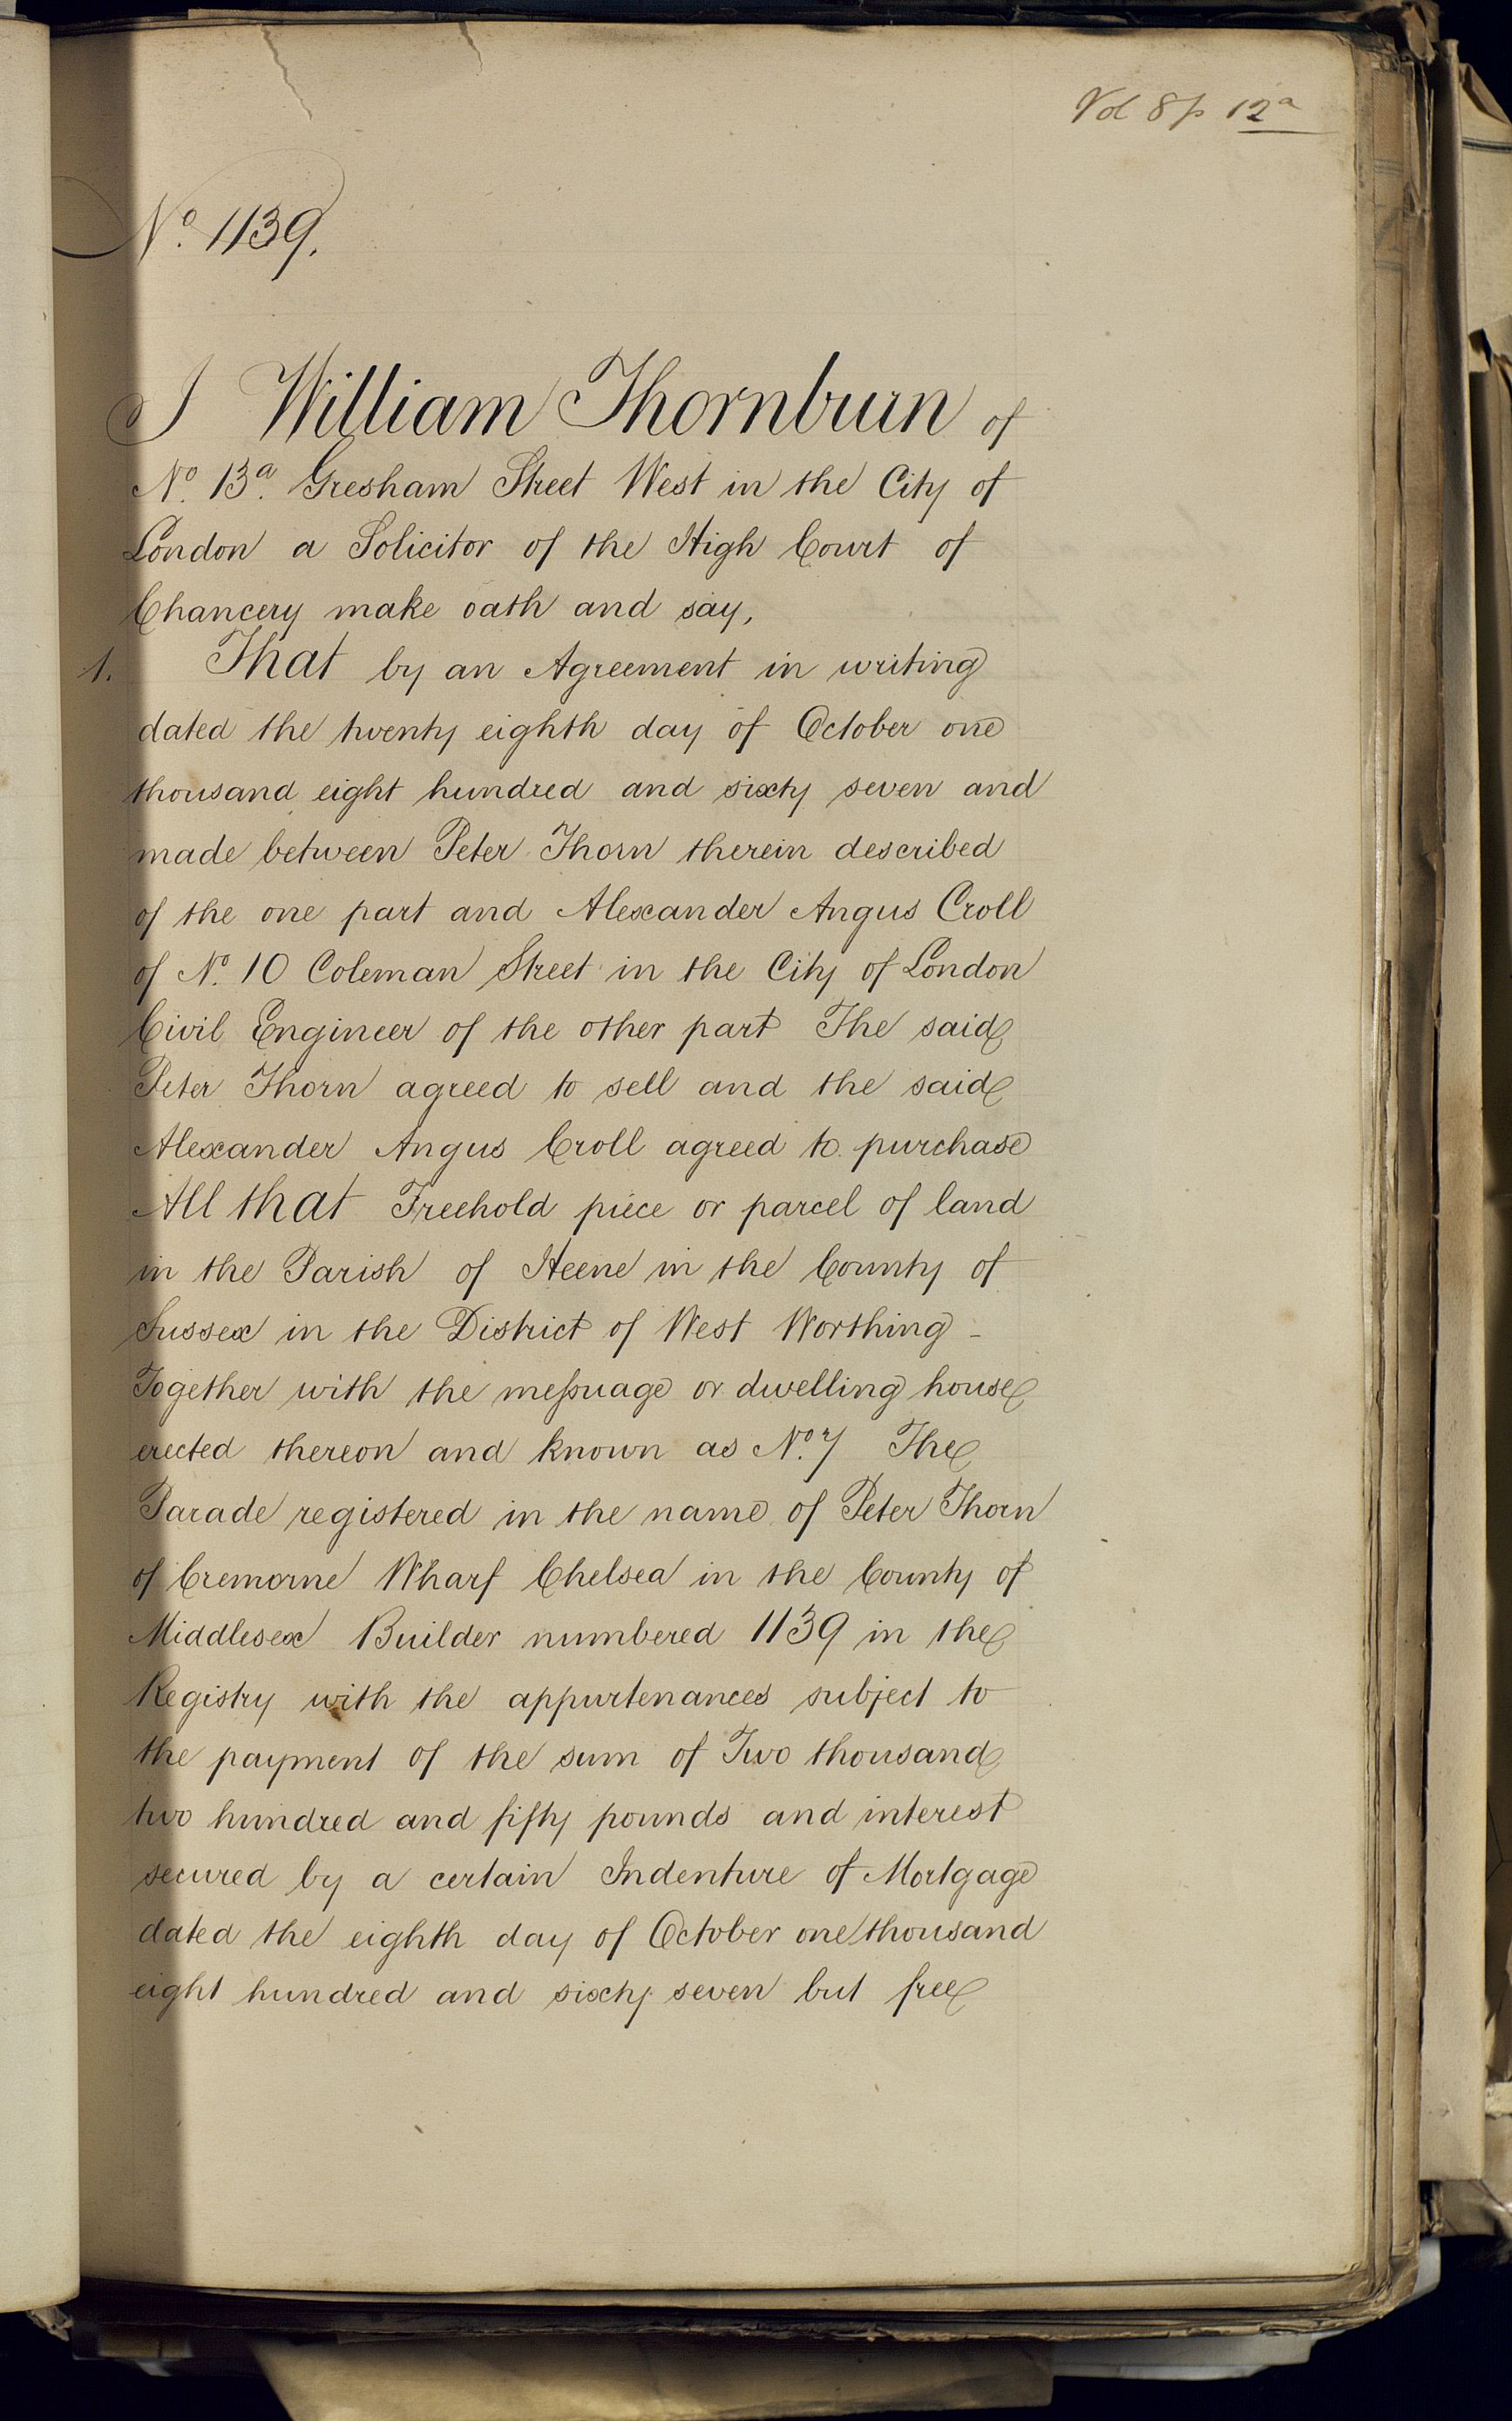 Vol 8 p 12a
No. 1139.
I William Thornburn of
No. 13a. Gresham Street West in the City of
London a Solicitor of the High Court of
Chancery make oath and say,
1. That by an Agreement in writing
dated the twenty eighth day of October one
thousand eight hundred and sixty seven and
made between Peter Thorn therein described
of the one part and Alexander Angus Croll
of No. 10 Coleman Street in the City of London
Civil Engineer of the other part The said
Peter Thorn agreed to sell and the said
Alexander Angus Croll agreed to purchase
All that Freehold piece or parcel of land
in the Parish of Heene in the County of
Sussex in the District of West Worthing -
Together with the meſsuage or dwelling house
erected thereon and known as No. 7 The
Parade registered in the name of Peter Thorn
of Cremorne Wharf Chelsea in the County of
Middlesex Builder numbered 1139 in the
Registry with the appurtenances subject to
the payment of the sum of Two thousand
two hundred and fifty pounds and interest
secured by a certain Indenture of Mortgage
dated the eighth day of October one thousand
eight hundred and sixty seven but free